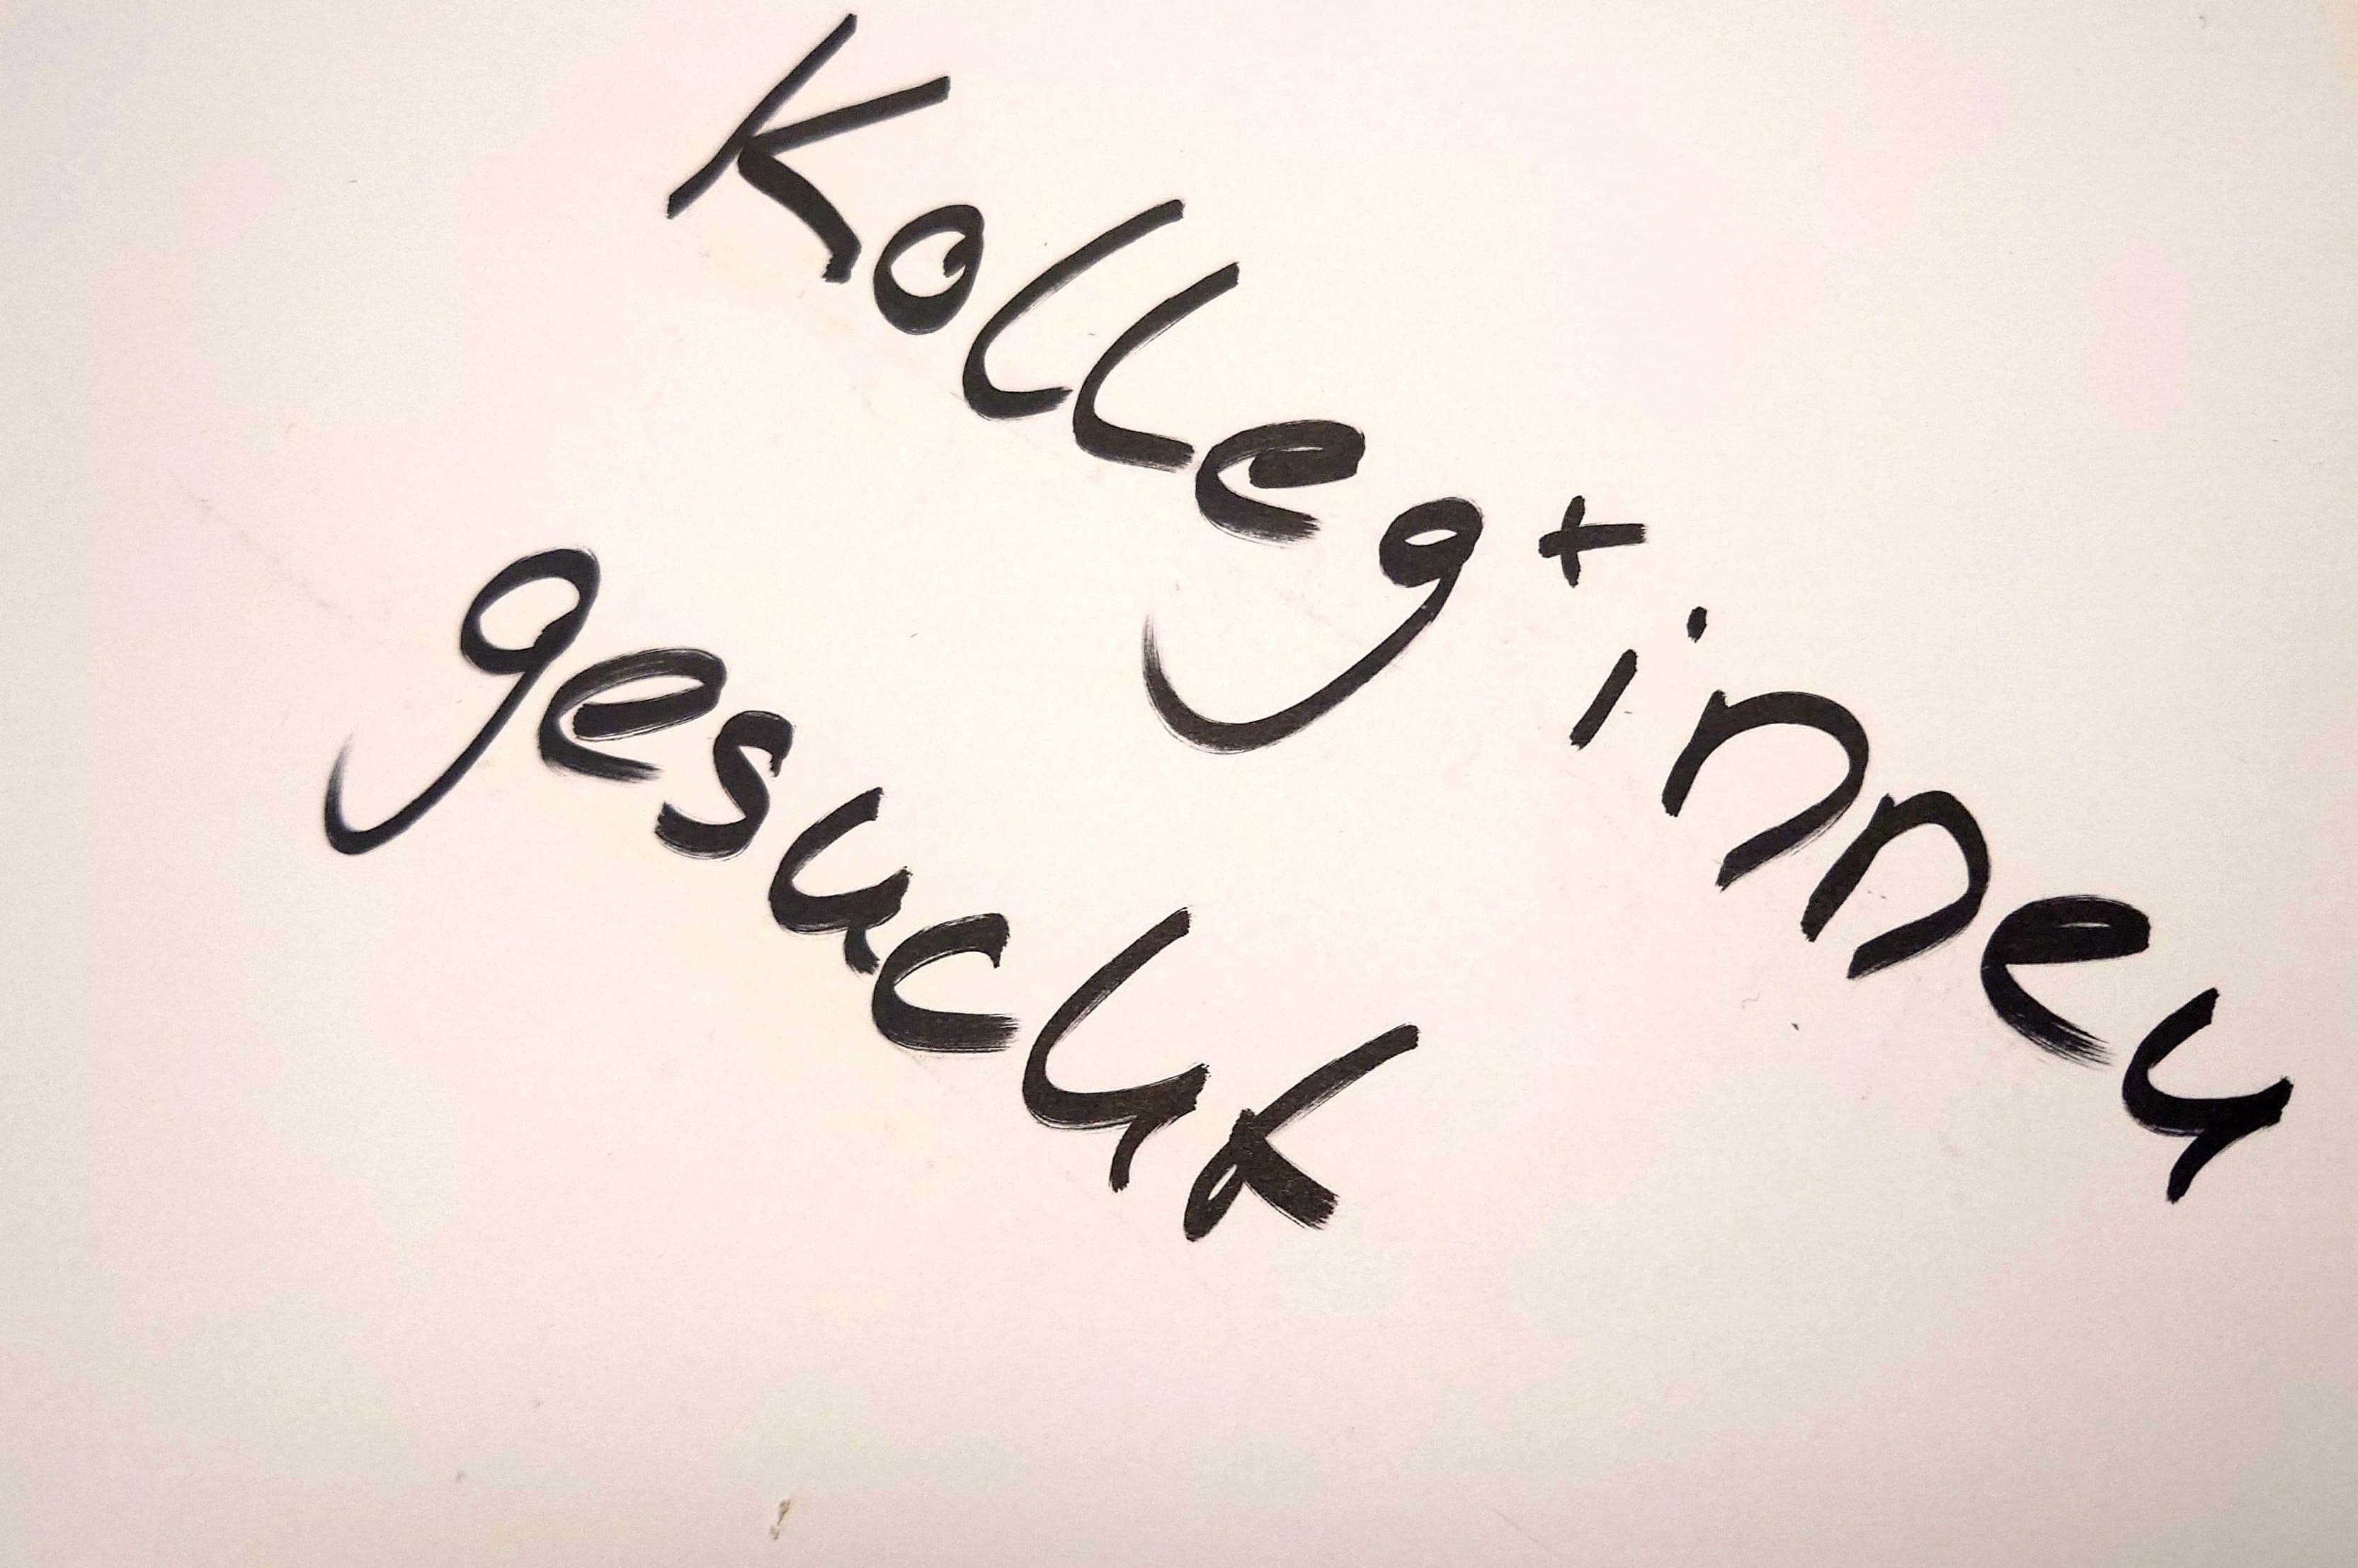 Kolleg*innen
gesucht